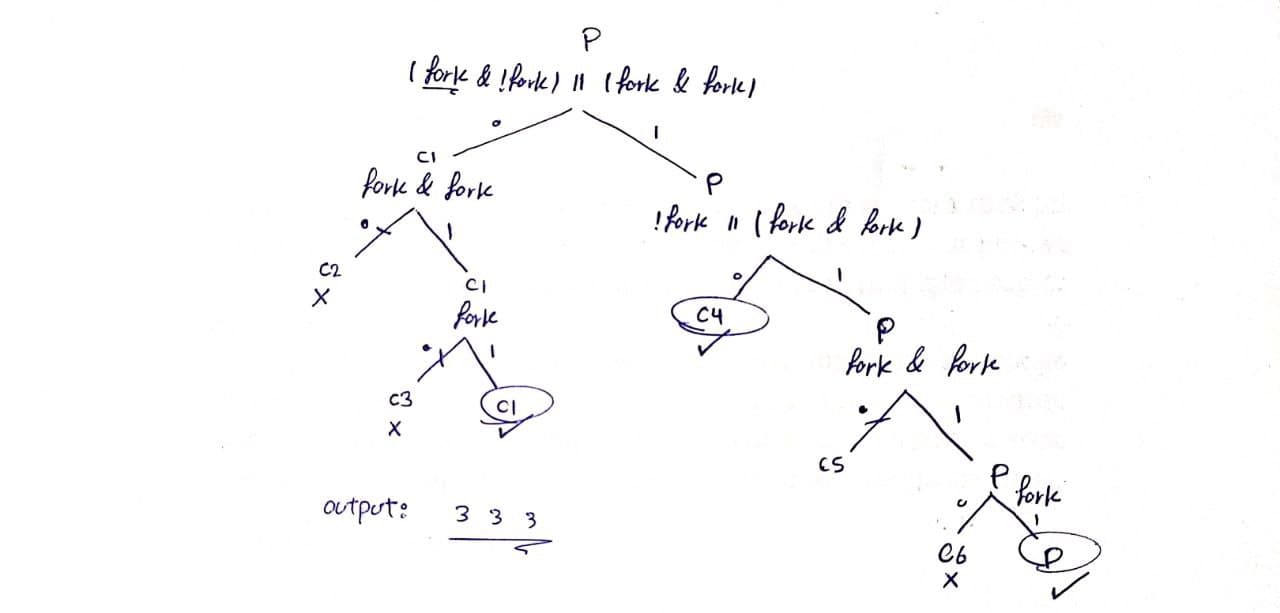 P
(fork & !fork) || (fork & fork)
0
1
C1
fork & fork
P
!fork || (fork & fork)
0
1
C2
X
C1
fork
0
1
C4
P
fork & fork
0
1
C3
X
C1
0
1
C5
P fork
0
1
C6
X
P
output: 3 3 3